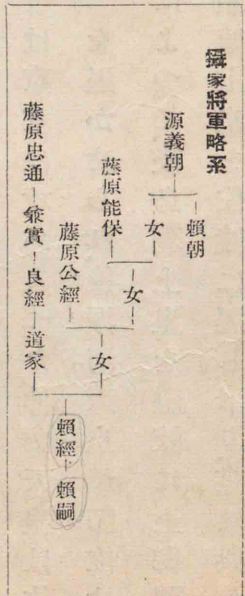 攝家將軍略系
源義朝
賴朝
女
藤原能保
女
藤原公經
女
藤原忠通―兼實―良經―道家
賴經―賴嗣